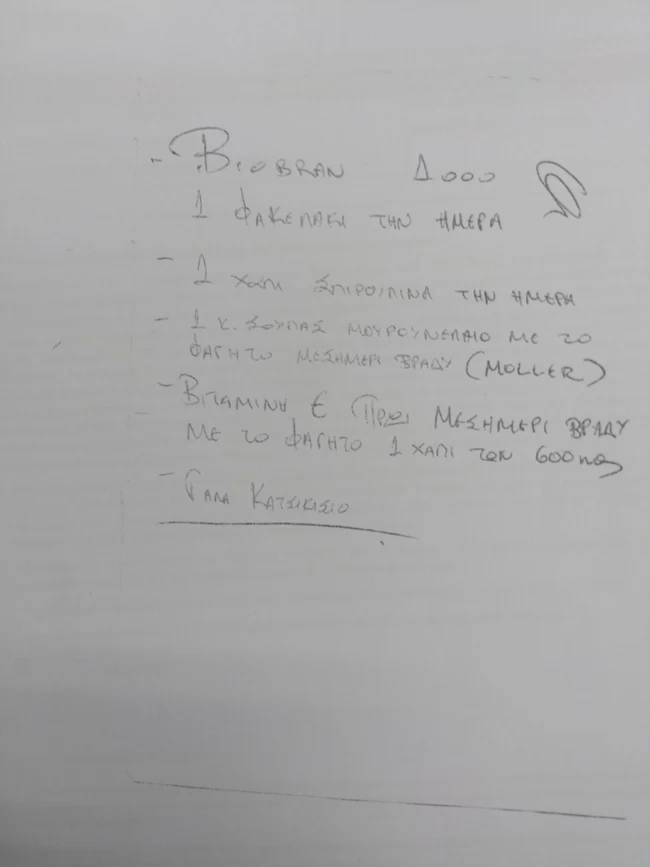 - BIOBRAN 1000
1 ΦΑΚΕΛΑΚΙ ΤΗΝ ΗΜΕΡΑ
- 1 ΧΑΠΙ ΣΠΙΡΟΥΛΙΝΑ ΤΗΝ ΗΜΕΡΑ
- 1 Κ. ΣΟΥΠΑΣ ΜΟΥΡΟΥΝΕΛΑΙΟ ΜΕ ΤΟ
ΦΑΓΗΤΟ ΜΕΣΗΜΕΡΙ ΒΡΑΔΥ (MOLLER)
- ΒΙΤΑΜΙΝΗ C ΠΡΩΙ ΜΕΣΗΜΕΡΙ ΒΡΑΔΥ
ΜΕ ΤΟ ΦΑΓΗΤΟ 1 ΧΑΠΙ ΤΩΝ 600mg
- ΓΑΛΑ ΚΑΤΣΙΚΙΣΙΟ